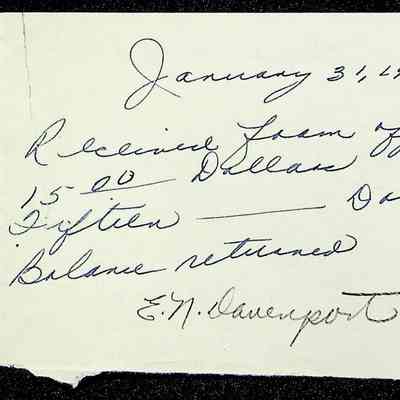 January 31, 19
Received loan of
15.00 Dollars
Fifteen —— Do
Balance returned
E.N. Davenport